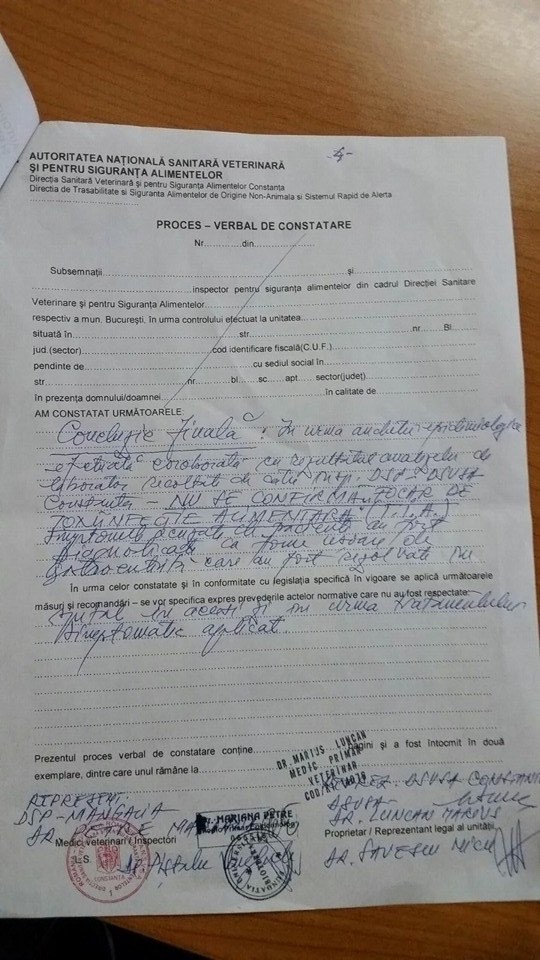 -4-
AUTORITATEA NAȚIONALĂ SANITARĂ VETERINARĂ
ȘI PENTRU SIGURANȚA ALIMENTELOR
Direcția Sanitară Veterinară și pentru Siguranța Alimentelor Constanța
Direcția de Trasabilitate si Siguranta Alimentelor de Origine Non-Animala si Sistemul Rapid de Alerta
PROCES – VERBAL DE CONSTATARE
Nr...............din........................
Subsemnații..................................................și..........................
..................inspector pentru siguranța alimentelor din cadrul Direcției Sanitare
Veterinare și pentru Siguranța Alimentelor..................
respectiv a mun. București, în urma controlului efectuat la unitatea..................
situată în..................str..................nr........Bl....
jud.(sector)..................cod identificare fiscală(C.U.F.)..................
pendinte de..................cu sediul social în..................
str..................nr........bl.....sc.....apt.....sector(județ)..........
în prezența domnului/doamnei..................în calitate de..................
AM CONSTATAT URMĂTOARELE:
Concluzie finală: În urma anchetei epidemiologice
efectuată coroborată cu rezultatul analizelor de
laborator recoltate de către DSP - DSVSA
Constanța - NU SE CONFIRMĂ FOCAR DE
TOXIINFECȚIE ALIMENTARĂ (T.I.A.)
Simptomele acuzate de pacienți au fost
diagnosticate ca forme ușoare de
gastroenterită care au fost rezolvate
În urma celor constatate și în conformitate cu legislația specifică în vigoare se aplică următoarele
măsuri și recomandări – se vor specifica expres prevederile actelor normative care nu au fost respectate:
în urma tratamentului
simptomatic aplicat.
Prezentul proces verbal de constatare conține..........pagini și a fost întocmit în două
exemplare, dintre care unul rămâne la..................
DR. MARIUS LUNCAN
MEDIC PRIMAR
VETERINAR
REPREZ. DSVSA CONSTANȚA
REPREZENT.
DSP-MANGALIA
DR. PETRE
MARIANA PETRE
DR. LUNCAN MARIUS
Medici veterinari / Inspectori
Proprietar / Reprezentant legal al unității
L.S.
CONSTANȚA